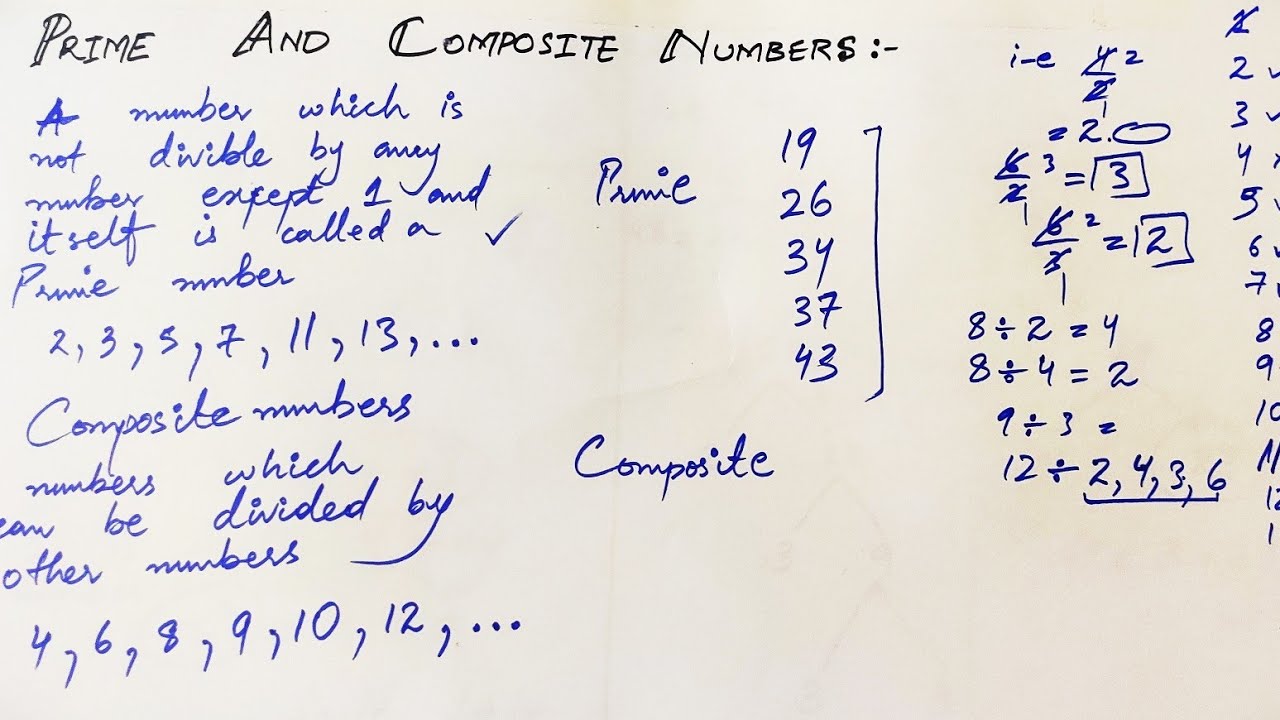 PRIME AND COMPOSITE NUMBERS:-
A number which is
not divible by any
number except 1 and
itself is called a ✓
Prime number
2, 3, 5, 7, 11, 13, ...
Composite numbers
numbers which
can be divided by
other numbers
4, 6, 8, 9, 10, 12, ...
Prime
Composite
19
26
34
37
43
i-e 4/2 2
1
= 2.
6/2 3 = 3
1
6/3 2 = 2
1
8 ÷ 2 = 4
8 ÷ 4 = 2
9 ÷ 3 =
12 ÷ 2, 4, 3, 6
2 ✓
3 ✓
4
5
6
7
8
9
10
11
12
1